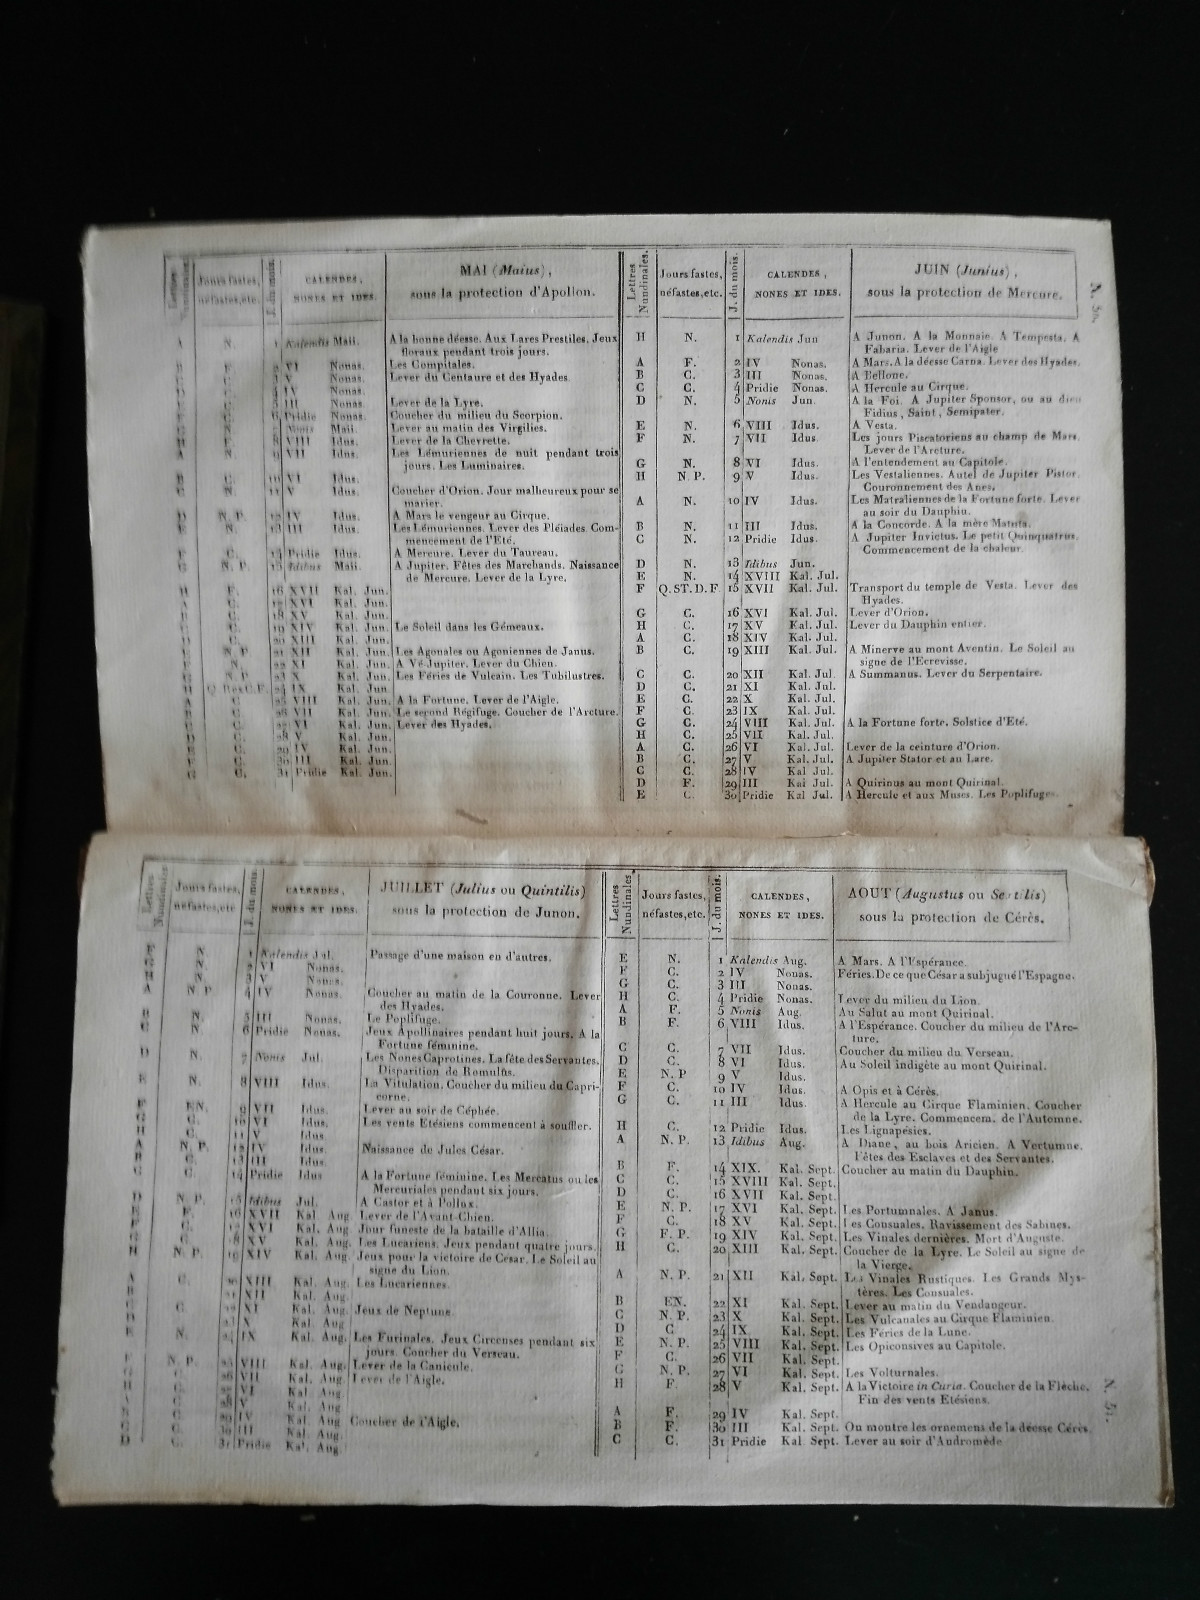 MAI (Maius),
sous la protection d'Apollon.
Jours fastes,
néfastes, etc.
J. du mois.
CALENDES,
NONES ET IDES.
Kalendis Maii. A la bonne déesse. Aux Lares Prestiles. Jeux
floraux pendant trois jours.
VI Nonas. Les Compitales.
Nonas. Lever du Centaure et des Hyades.
IV Nonas.
III Nonas. Lever de la Lyre.
Pridie Nonas. Coucher du milieu du Scorpion.
Nonis Maii. Lever au matin des Virgilies.
VIII Idus. Lever de la Chevrette.
VII Idus. Les Lémuriennes de nuit pendant trois
jours. Les Luminaires.
VI Idus.
V Idus. Coucher d'Orion. Jour malheureux pour se
marier.
N. P. IV Idus. A Mars le vengeur au Cirque.
N. 13 III Idus. Les Lémuriennes. Lever des Pléiades. Com-
mencement de l'Eté.
C. 14 Pridie Idus. A Mercure. Lever du Taureau.
N. P. 15 Idibus Maii. A Jupiter. Fêtes des Marchands. Naissance
de Mercure. Lever de la Lyre.
16 XVII Kal. Jun.
XVI Kal. Jun.
18 XV Kal. Jun.
XIV Kal. Jun. Le Soleil dans les Gémeaux.
XIII Kal. Jun.
XII Kal. Jun. Les Agonales ou Agoniennes de Janus.
XI Kal. Jun. A Vé Jupiter. Lever du Chien.
X Kal. Jun. Les Féries de Vulcain. Les Tubilustres.
IX Kal. Jun.
VIII Kal. Jun. A la Fortune. Lever de l'Aigle.
VII Kal. Jun. Le second Régifuge. Coucher de l'Arcture.
VI Kal. Jun. Lever des Hyades.
V Kal. Jun.
IV Kal. Jun.
III Kal. Jun.
C. 31 Pridie Kal. Jun.
Lettres
Nundinales.
Jours fastes,
néfastes, etc.
J. du mois.
CALENDES,
NONES ET IDES.
JUIN (Junius),
sous la protection de Mercure.
N. 50.
H N. 1 Kalendis Jun A Junon. A la Monnaie. A Tempesta. A
Fabaria. Lever de l'Aigle
A F. 2 IV Nonas. A Mars. A la déesse Carna. Lever des Hyades.
B C. 3 III Nonas. A Bellone.
C C. 4 Pridie Nonas. A Hercule au Cirque.
D N. 5 Nonis Jun. A la Foi. A Jupiter Sponsor, ou au dieu
Fidius, Saint, Semipater.
E N. 6 VIII Idus. A Vesta.
F N. 7 VII Idus. Les jours Piscatoriens au champ de Mars.
Lever de l'Arcture.
G N. 8 VI Idus. A l'entendement au Capitole.
H N. P. 9 V Idus. Les Vestaliennes. Autel de Jupiter Pistor.
Couronnement des Anes.
A N. 10 IV Idus. Les Matraliennes de la Fortune forte. Lever
au soir du Dauphin.
B N. 11 III Idus. A la Concorde. A la mère Matuta.
C N. 12 Pridie Idus. A Jupiter Invictus. Le petit Quinquatrius.
Commencement de la chaleur.
D N. 13 Idibus Jun.
E N. 14 XVIII Kal. Jul.
F Q. ST. D. F. 15 XVII Kal. Jul. Transport du temple de Vesta. Lever des
Hyades.
G C. 16 XVI Kal. Jul. Lever d'Orion.
H C. 17 XV Kal. Jul. Lever du Dauphin entier.
A C. 18 XIV Kal. Jul.
B C. 19 XIII Kal. Jul. A Minerve au mont Aventin. Le Soleil au
signe de l'Ecrevisse.
C C. 20 XII Kal. Jul. A Summanus. Lever du Serpentaire.
D C. 21 XI Kal. Jul.
E C. 22 X Kal. Jul.
F C. 23 IX Kal. Jul.
G C. 24 VIII Kal. Jul. A la Fortune forte. Solstice d'Eté.
H C. 25 VII Kal. Jul.
A C. 26 VI Kal. Jul. Lever de la ceinture d'Orion.
B C. 27 V Kal. Jul. A Jupiter Stator et au Lare.
C C. 28 IV Kal Jul.
D F. 29 III Kal Jul. A Quirinus au mont Quirinal.
E C. 30 Pridie Kal Jul. A Hercule et aux Muses. Les Poplifuges
Jours fastes,
néfastes, etc
J. du mois.
CALENDES,
NONES ET IDES.
JUILLET (Julius ou Quintilis)
sous la protection de Junon.
N. 1 Kalendis Jul. Passage d'une maison en d'autres.
N. VI Nonas.
N. V Nonas.
A N. P. 4 IV Nonas. Coucher au matin de la Couronne. Lever
des Hyades.
N. 5 III Nonas. Le Poplifuge.
N. 6 Pridie Nonas. Jeux Apollinaires pendant huit jours. A la
Fortune féminine.
D N. 7 Nonis Jul. Les Nones Caprotines. La fête des Servantes.
Disparition de Romulus.
E N. 8 VIII Idus. La Vitulation. Coucher du milieu du Capri-
corne.
EN. VII Idus. Lever au soir de Céphée.
C. VI Idus. Les vents Etésiens commencent à souffler.
V Idus.
N. P. IV Idus. Naissance de Jules César.
III Idus
C. Pridie Idus A la Fortune féminine. Les Mercatus ou les
Mercuriales pendant six jours.
N. P. 15 Idibus Jul. A Castor et à Pollux.
16 XVII Kal Aug. Lever de l'Avant-Chien.
XVI Kal. Aug. Jour funeste de la bataille d'Allia.
XV Kal. Aug. Les Lucariens. Jeux pendant quatre jours.
N. P. XIV Kal. Aug. Jeux pour la victoire de César. Le Soleil au
signe du Lion.
XIII Kal. Aug. Les Lucariennes.
XII Kal. Aug.
XI Kal. Aug Jeux de Neptune.
X Kal. Aug
N. IX Kal. Aug. Les Furinales. Jeux Circenses pendant six
jours. Coucher du Verseau.
N. P. VIII Kal. Aug. Lever de la Canicule.
VII Kal. Aug. Lever de l'Aigle.
VI Kal. Aug
V Kal. Aug.
IV Kal. Aug Coucher de l'Aigle.
III Kal. Aug.
C. 31 Pridie Kal. Aug
Lettres
Nundinales.
Jours fastes,
néfastes, etc.
J. du mois.
CALENDES,
NONES ET IDES.
AOUT (Augustus ou Sextilis)
sous la protection de Cérès.
N. 51.
E N. 1 Kalendis Aug. A Mars. A l'Espérance.
F C. 2 IV Nonas. Féries. De ce que César a subjugué l'Espagne.
G C. 3 III Nonas.
H C. 4 Pridie Nonas. Lever du milieu du Lion.
A F. 5 Nonis Aug. Au Salut au mont Quirinal.
B F. 6 VIII Idus. A l'Espérance. Coucher du milieu de l'Arc-
ture.
C C. 7 VII Idus. Coucher du milieu du Verseau.
D C. 8 VI Idus. Au Soleil indigète au mont Quirinal.
E N. P 9 V Idus.
F C. 10 IV Idus. A Opis et à Cérès.
G C. 11 III Idus. A Hercule au Cirque Flaminien. Coucher
de la Lyre. Commencem. de l'Automne.
H C. 12 Pridie Idus. Les Lignapésies.
A N. P. 13 Idibus Aug. A Diane, au bois Aricien. A Vertumne.
Fêtes des Esclaves et des Servantes.
B F. 14 XIX. Kal. Sept. Coucher au matin du Dauphin.
C C. 15 XVIII Kal. Sept.
D C. 16 XVII Kal. Sept.
E N. P. 17 XVI Kal. Sept. Les Portumnales. A Janus.
F C. 18 XV Kal. Sept. Les Consuales. Ravissement des Sabines.
G F. P. 19 XIV Kal. Sept. Les Vinales dernières. Mort d'Auguste.
H C. 20 XIII Kal. Sept. Coucher de la Lyre. Le Soleil au signe de
la Vierge.
A N. P. 21 XII Kal. Sept. Les Vinales Rustiques. Les Grands Mys-
tères. Les Consuales.
B EN. 22 XI Kal. Sept. Lever au matin du Vendangeur.
C N. P. 23 X Kal. Sept. Les Vulcanales au Cirque Flaminien.
D C 24 IX Kal. Sept. Les Féries de la Lune.
E N. P. 25 VIII Kal. Sept. Les Opiconsives au Capitole.
F C. 26 VII Kal. Sept.
G N. P. 27 VI Kal. Sept. Les Volturnales.
H F. 28 V Kal. Sept. A la Victoire in Curia. Coucher de la Flèche.
Fin des vents Etésiens.
A F. 29 IV Kal. Sept.
B F. 30 III Kal. Sept. On montre les ornemens de la déesse Cérès.
C C. 31 Pridie Kal. Sept. Lever au soir d'Andromède